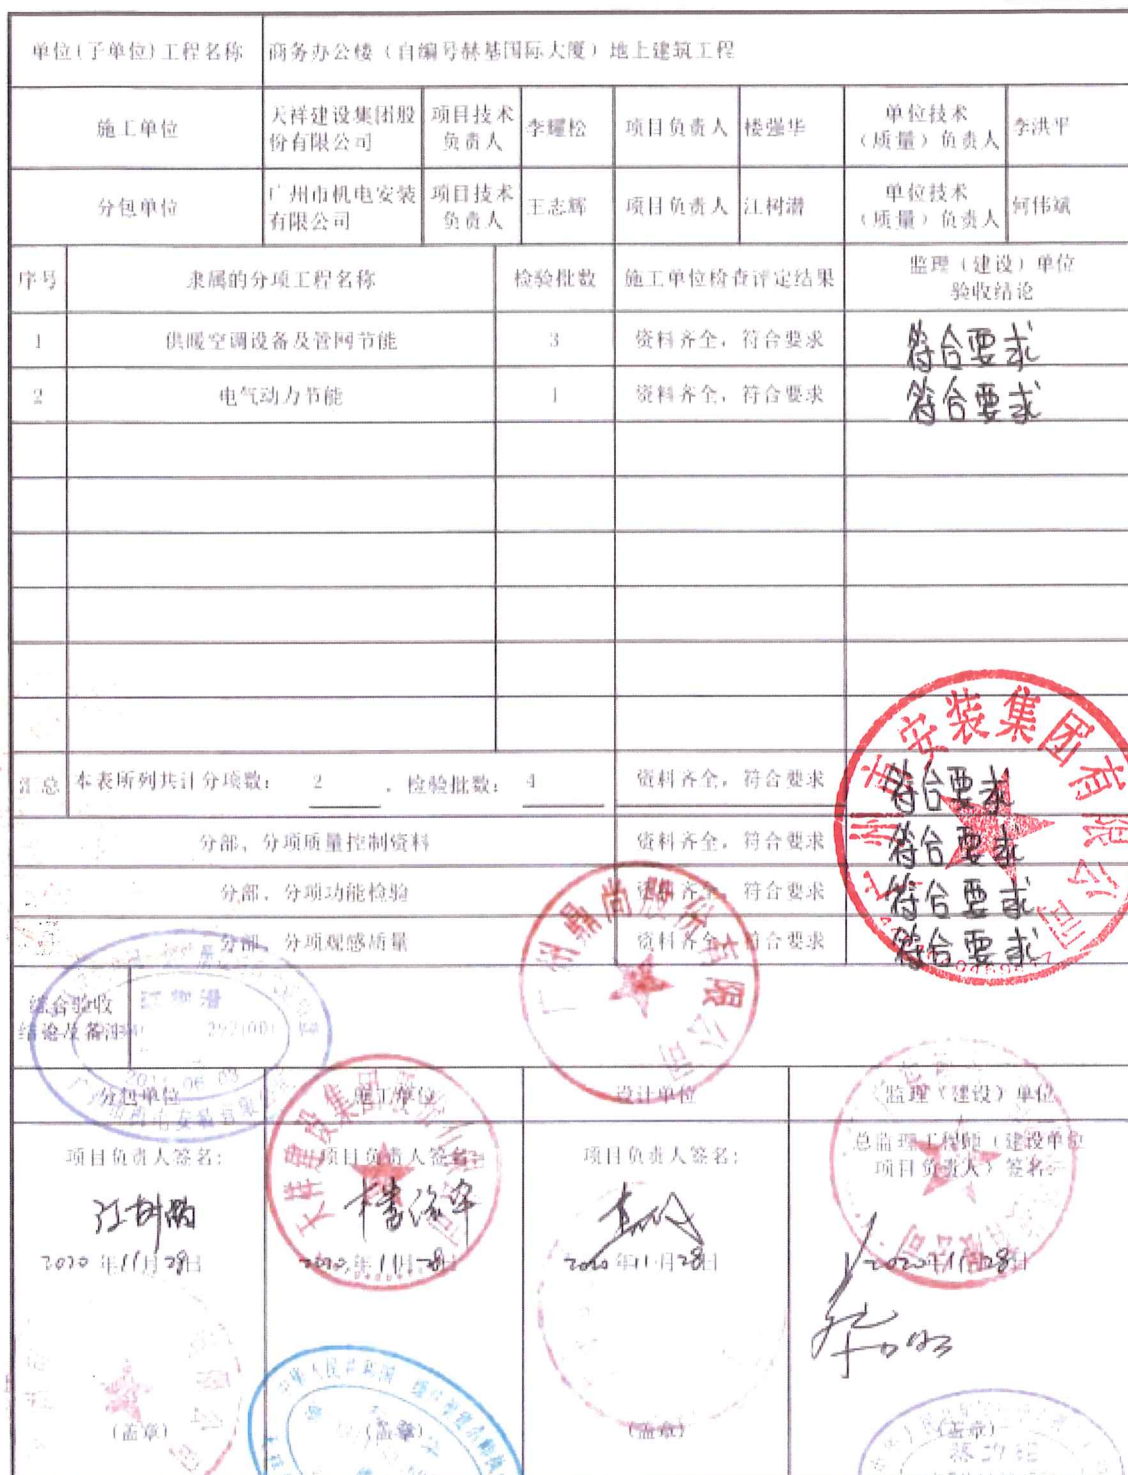 单位(子单位)工程名称 商务办公楼（自编号赫基国际大厦）地上建筑工程
施工单位 天祥建设集团股份有限公司 项目技术负责人 李耀松 项目负责人 楼强华 单位技术（质量）负责人 李洪平
分包单位 广州市机电安装有限公司 项目技术负责人 王志辉 项目负责人 江树潜 单位技术（质量）负责人 何伟斌
序号 隶属的分项工程名称 检验批数 施工单位检查评定结果 监理（建设）单位验收结论
1 供暖空调设备及管网节能 3 资料齐全，符合要求 符合要求
2 电气动力节能 1 资料齐全，符合要求 符合要求
汇总 本表所列共计分项数： 2 ，检验批数： 4 资料齐全，符合要求 符合要求
分部、分项质量控制资料 资料齐全，符合要求 符合要求
分部、分项功能检验 资料齐全，符合要求 符合要求
分部、分项观感质量 资料齐全，符合要求 符合要求
广州市安装集团有限公司
广州鼎尚股份有限公司
综合验收
结论及备注
分包单位 施工单位 设计单位 监理（建设）单位
项目负责人签名： 项目负责人签名： 项目负责人签名： 总监理工程师（建设单位
项目负责人）签名：
2020年11月28日 2020年11月28日 2020年11月28日 2020年11月28日
(盖章) (盖章) (盖章) (盖章)